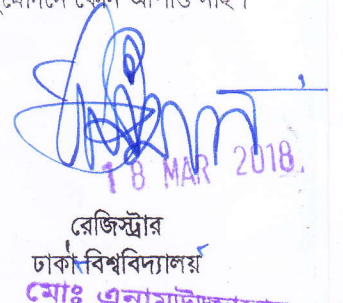 কোন আপত্তি নাই।
18 MAR 2018.
রেজিস্ট্রার
ঢাকা বিশ্ববিদ্যালয়
মোঃ